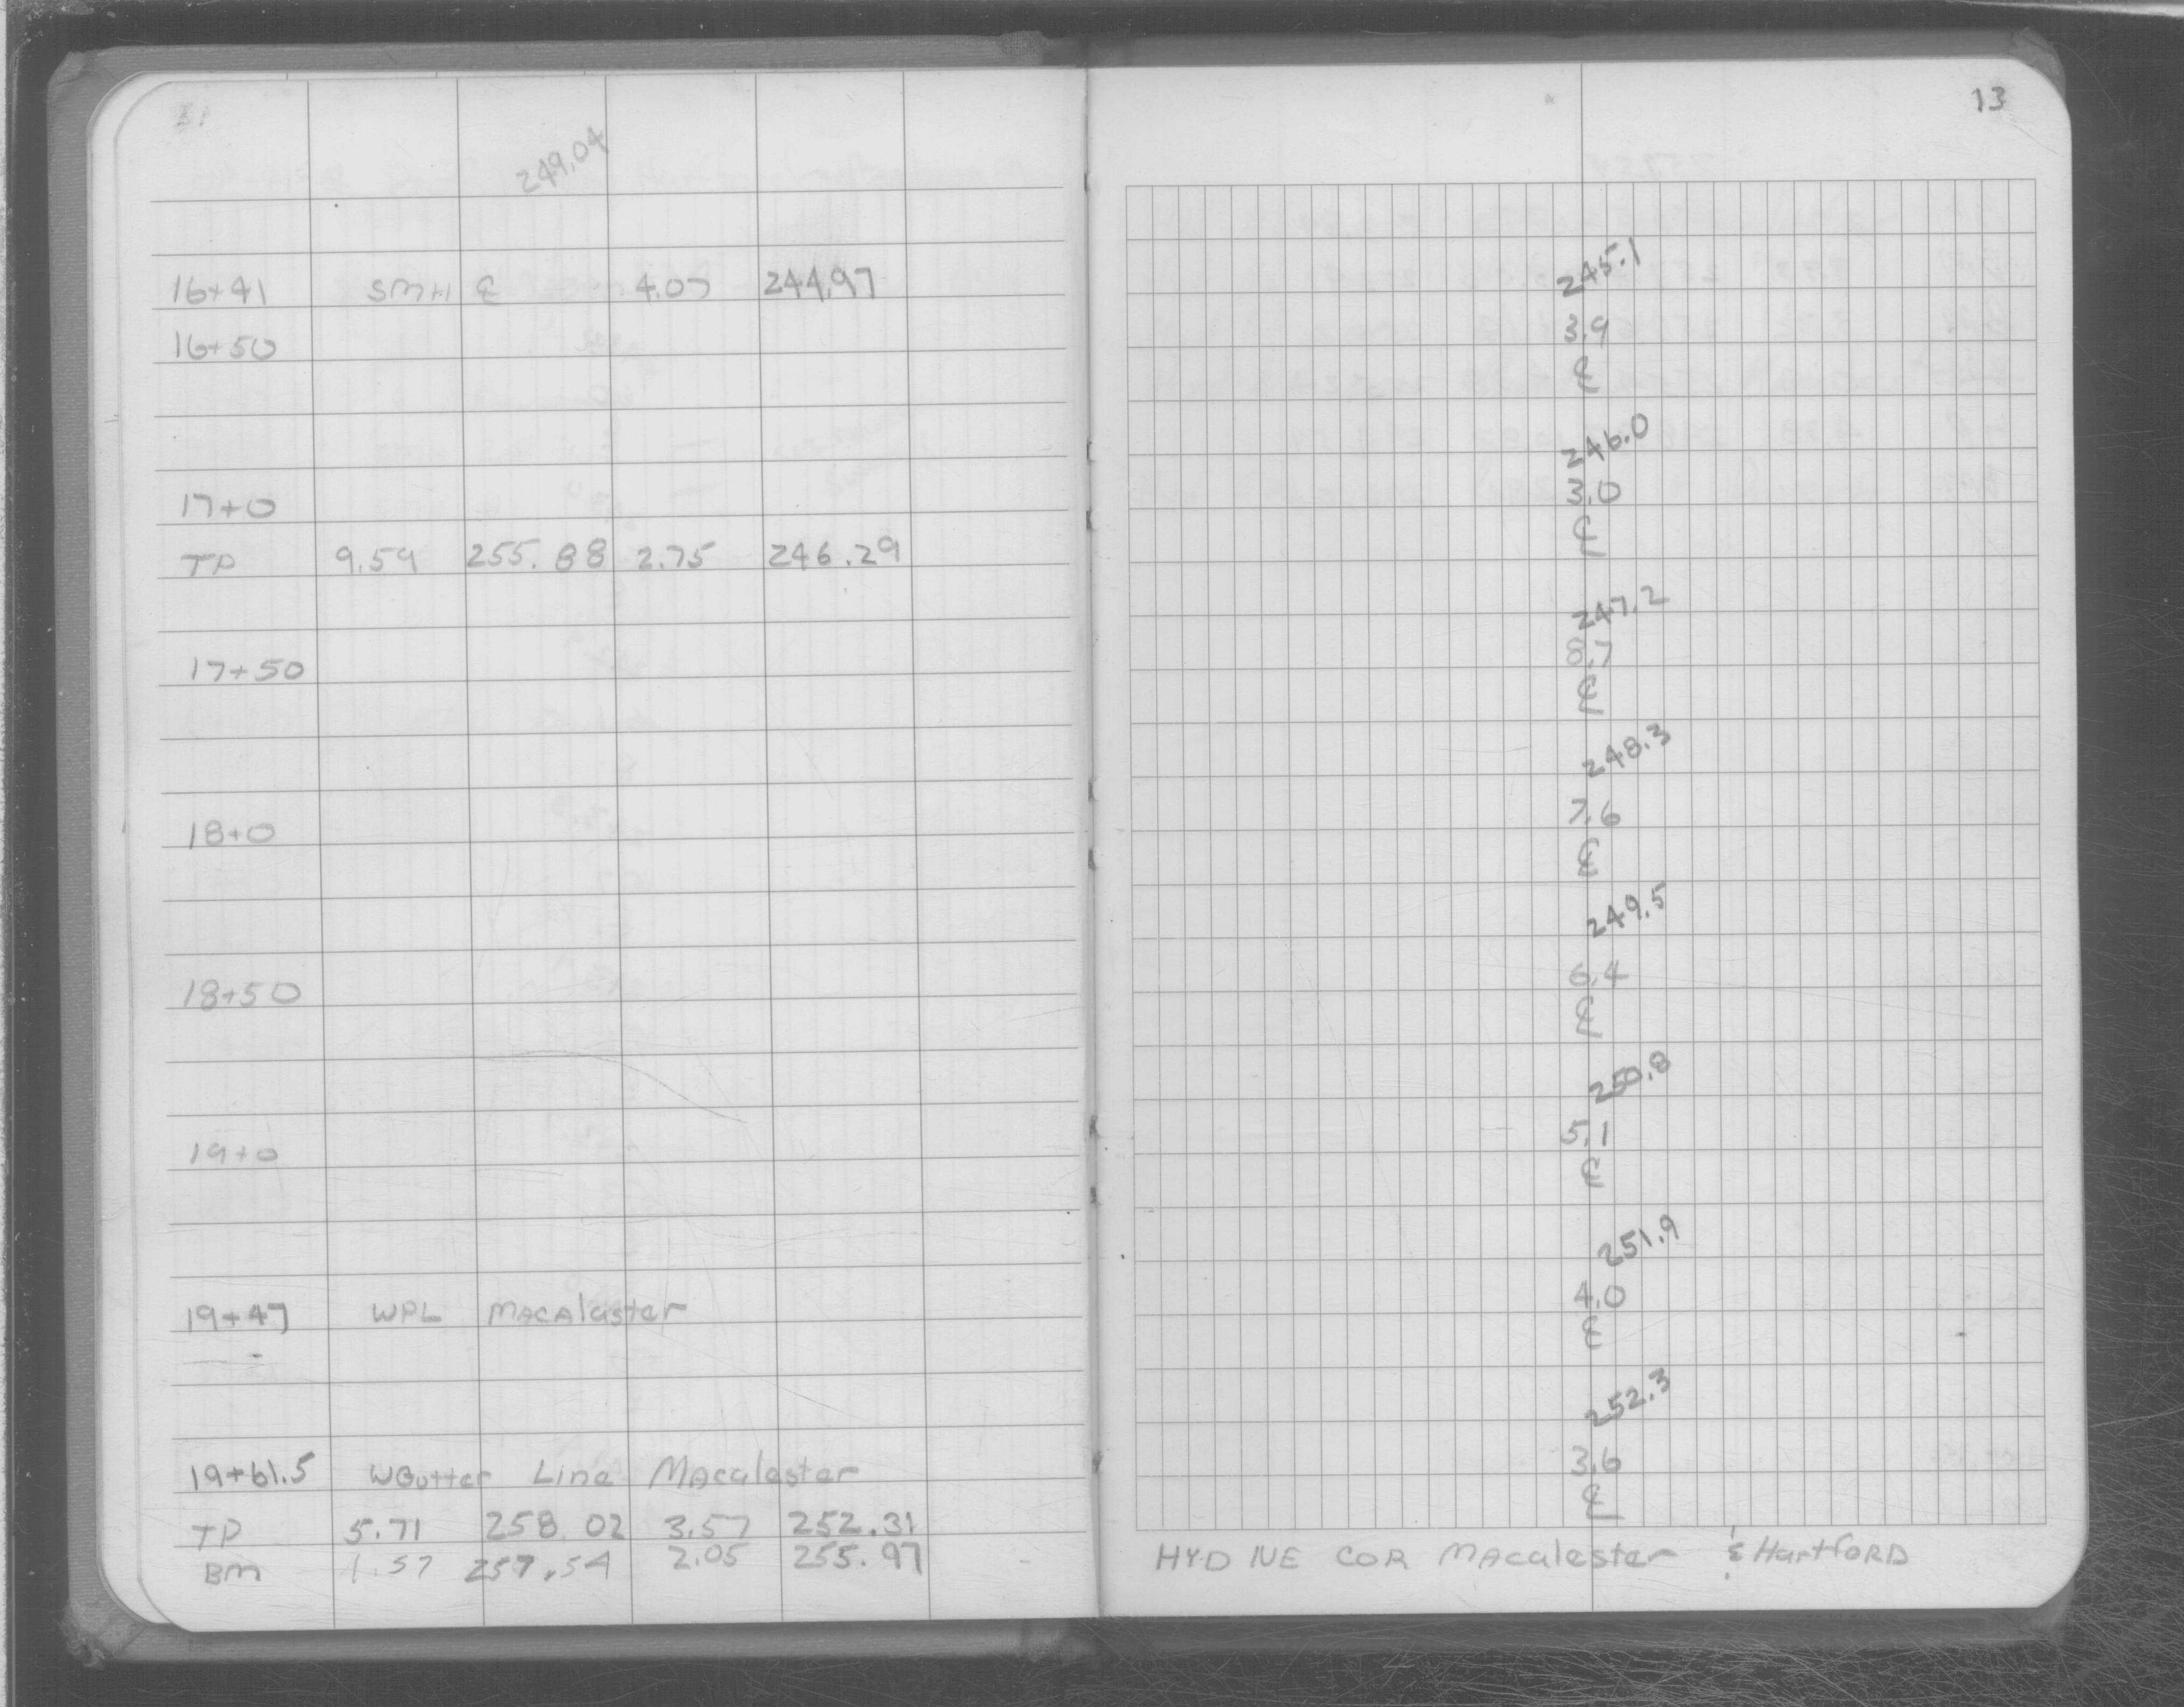 13
249.04
245.1
16+41 SMH ℄ 4.07 244.97
16+50 3.9
℄
246.0
17+0 3.0
℄
TP 9.59 255.88 2.75 246.29
247.2
17+50 8.7
℄
248.3
18+0 7.6
℄
249.5
18+50 6.4
℄
250.8
19+0 5.1
℄
251.9
19+47 WPL Macalaster 4.0
℄
252.3
19+61.5 W Gutter Line Macalester 3.6
℄
TP 5.71 258.02 3.57 252.31
BM 1.57 257.54 2.05 255.97 HYD NE COR Macalester & HartFORD